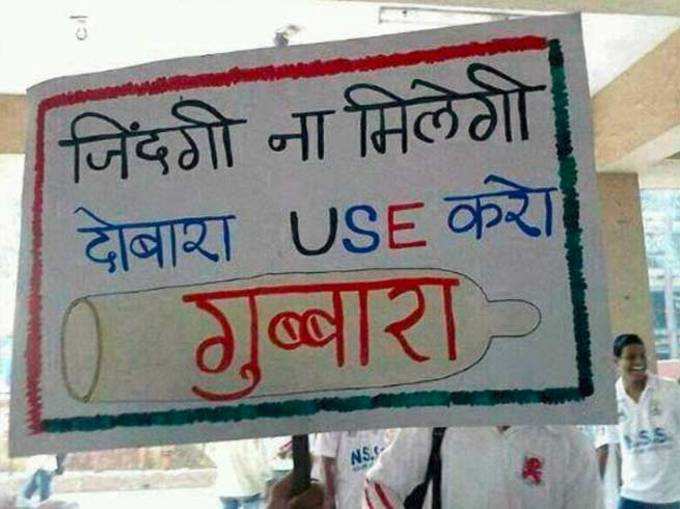 जिंदगी ना मिलेगी
दोबारा USE करो
गुब्बारा
N.S.S